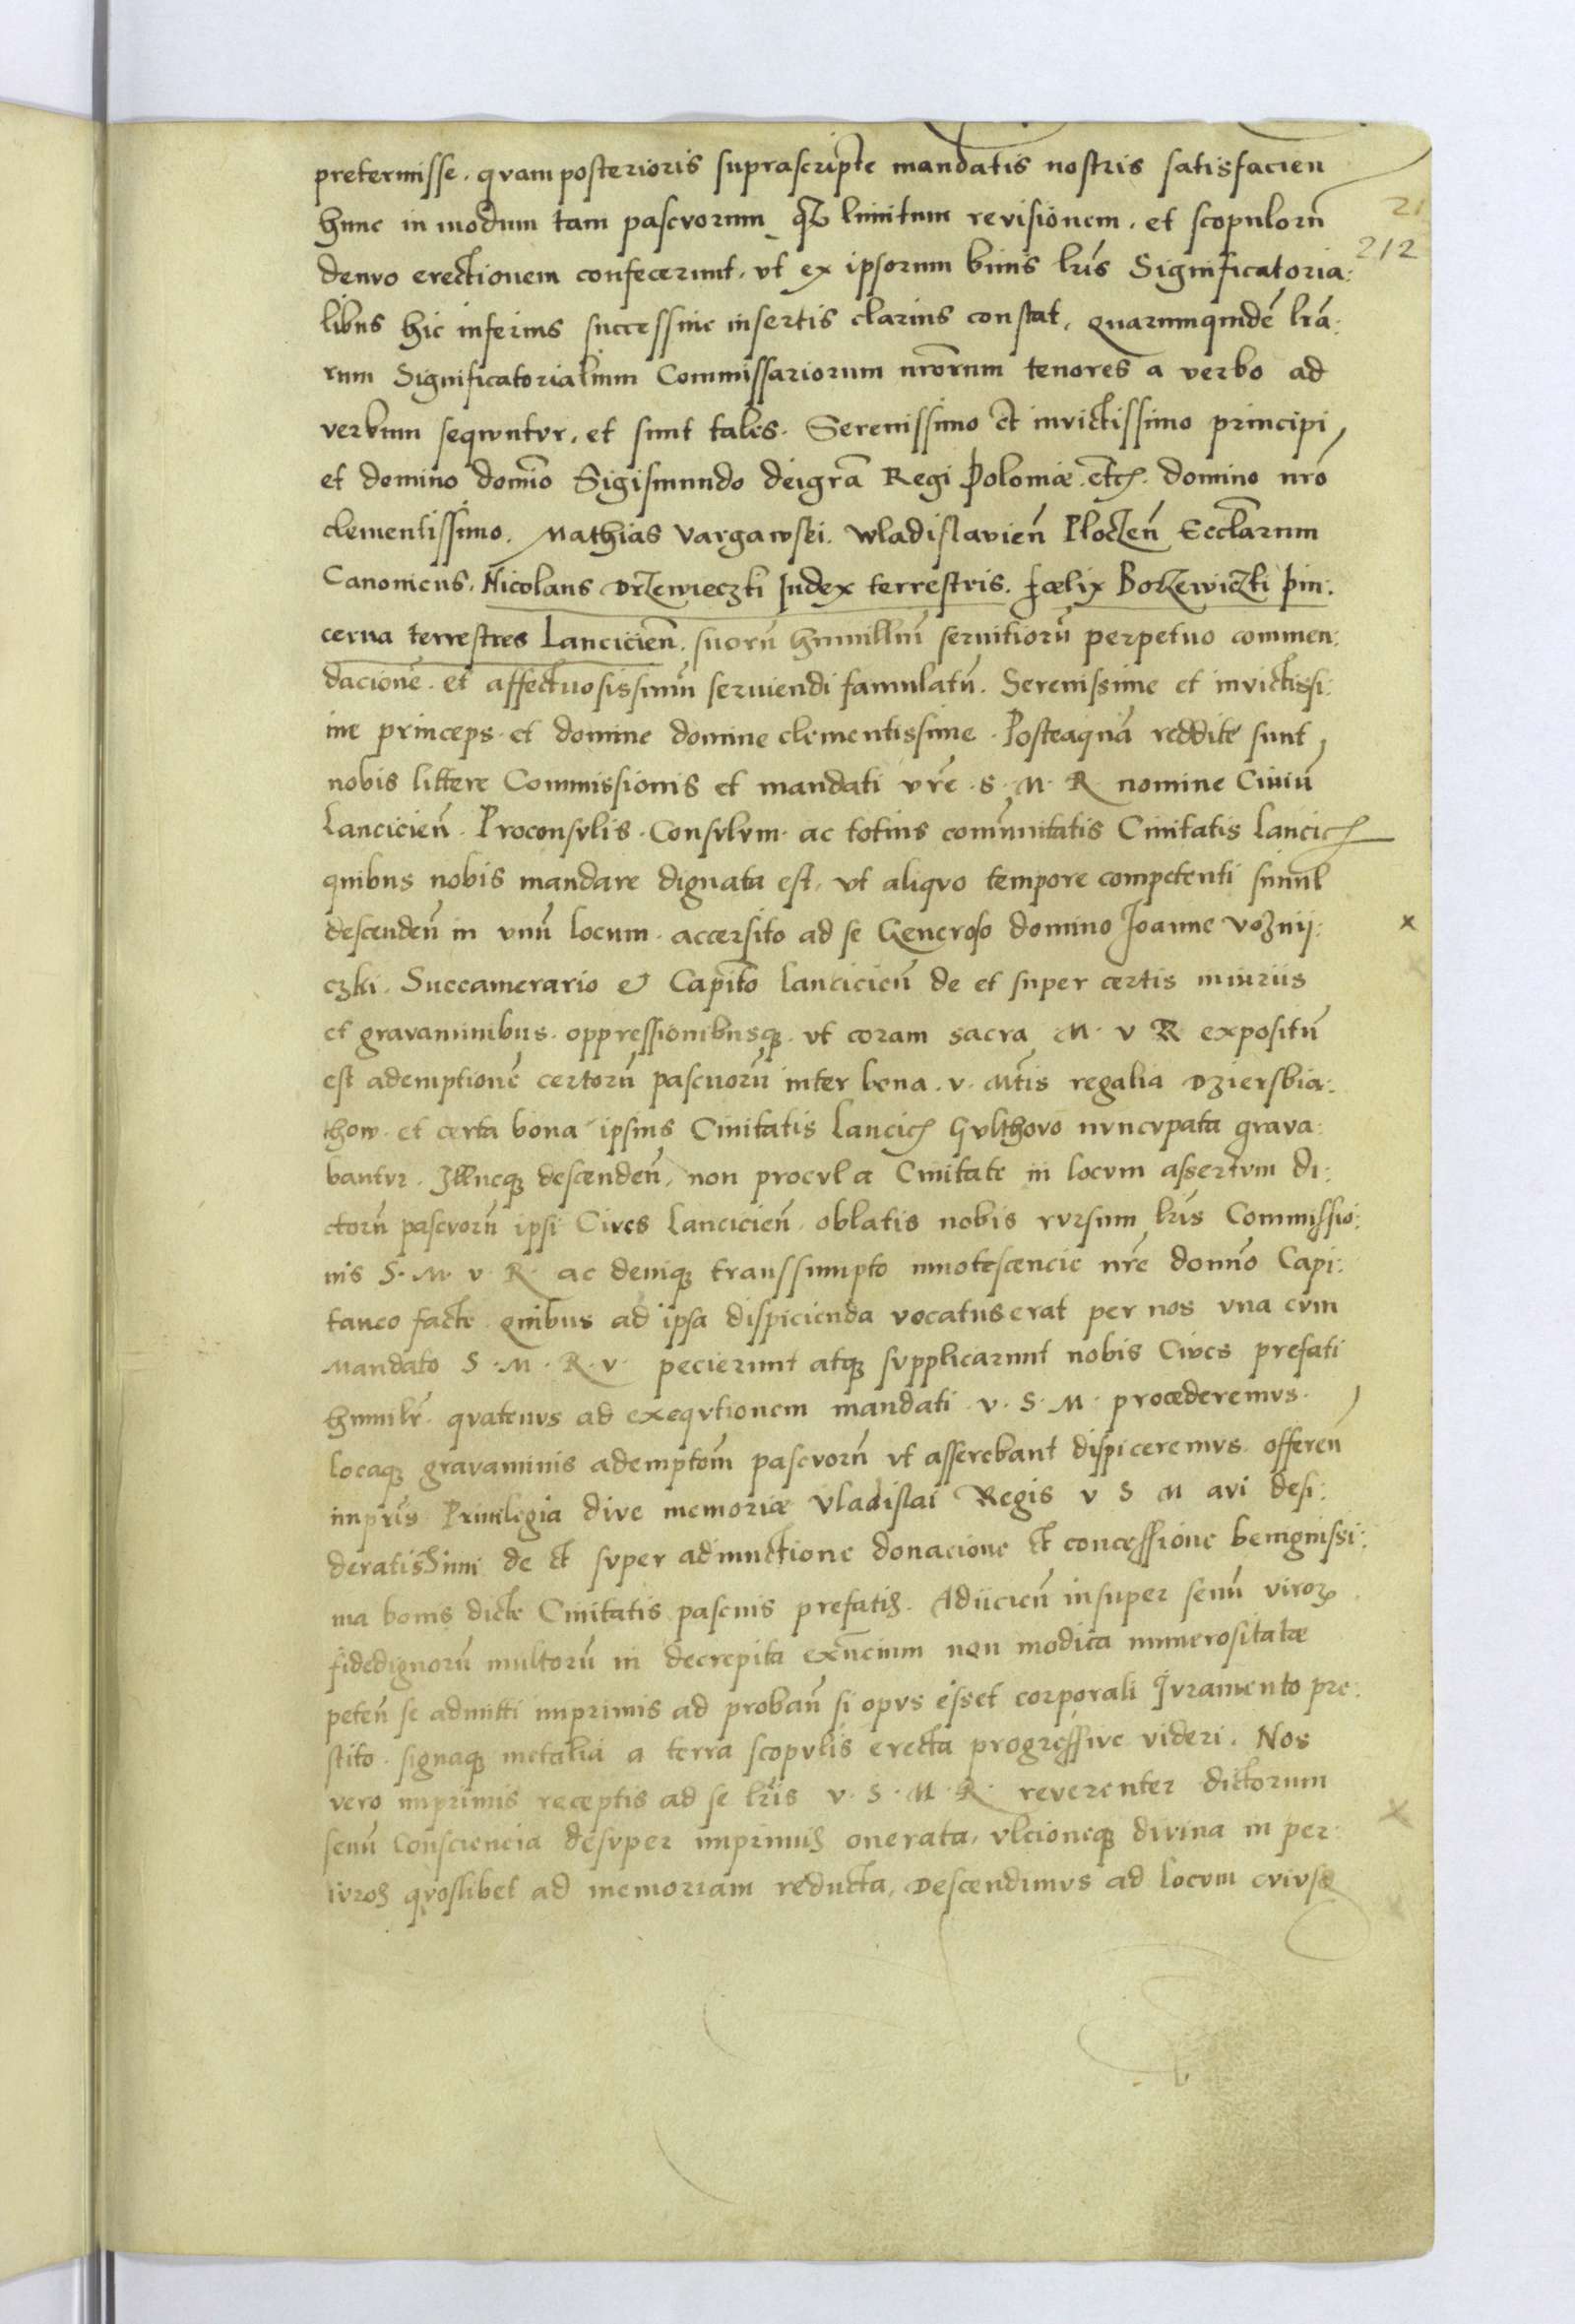 pretermisse. qvam posterioris suprascripte mandatis nostris satisfacien
hunc in modum tam pascvorum qʒ limitum revisionem. et scopulorū
21
denvo erectionem confecerunt, vt ex ipsorum binis lr̄is Significatoria:
212
libus hic inferius successiue insertis clarius constat, quarumquidē lrā:
rum Significatorialium Commissariorum nrōrum tenores a verbo ad
verbum seqwntvr, et sunt tales. Serenissimo et invictissimo principi
et domino domīo Sigismundo deigrā Regi Poloniæ etc. domino nrō
clementissimo. Mathias Vargawski. Wladislavień Ploczeń Ecclārum
Canonicus. Nicolaus Drzewieczki Judex terrestris. Fœlix Borzewiczki pin:
cerna terrestres Lancicień. suorū humillimū seruitiorū perpetuo commen:
dacionē. et affectuosissimū seruiendi famulatū. Serenissime et invictissi:
me princeps et domine domine clementissime. Posteaquā reddite sunt
nobis littere Commissionis et mandati vrē. S. M. R nomine Ciuiū
Lancicień. Proconsvlis. Consvlvm. ac totius comūnitatis Ciuitatis Lancic
quibus nobis mandare dignata est, vt aliqvo tempore competenti simul
descendeń in vnū locum. accersito ad se Generoso domino Joanne Voznij:
x
czki. Succamerario & Capitō Lancicień de et super certis iniuriis
et gravaminibus. oppressionibusqʒ. vt coram sacra M. v R expositū
est ademptionē certorū pascuorū inter bona. v. Mtis regalia Dziersbia:
thow. et certa bona ipsius Ciuitatis Lancic Gvlthovo nvncvpata grava:
bantvr. Illucqʒ descendeń, non procvl a Ciuitate in locvm assertvm di:
ctorū pascvorū ipsi Cives Lancicień. oblatis nobis rvrsum lr̄is Commissio:
nis S. M. v. R. ac deniqʒ transsumpto innotescencie nrē domīo Capi:
taneo facte quibus ad ipsa dispicienda vocatus erat per nos vna cvm
Mandato S. M. R. v. pecierunt atqʒ svpplicarunt nobis Cives prefati
humilr̄. qvatenvs ad exeqvtionem mandati v. S. M. procederemvs.
Locaqʒ gravaminis ademptōm pascvorū vt asserebant dispiceremvs. offereń
imprīs Priuilegia dive memoriæ Vladislai Regis v S M avi desi:
deratissimi de et svper adiunctione donacione et concessione benignissi:
ma bonis dicte Ciuitatis pascuis prefatis. Adiicień insuper senū viroꝝ
fidedignorū multorū in decrepita non modica numerositatæ
peteń se admitti imprimis ad probań si opvs esset corporali Jvramento pre:
stito. signaqʒ metalia a terra scopvlis erecta progressive videri. Nos
vero imprimis receptis ad se lr̄is v. S. M. R. reverenter dictorum
x
senū Consciencia desvper imprimis onerata, vlcioneqʒ divina in per:
ivros qvoslibet ad memoriam reducta, Descendimvs ad Locvm cvivsqʒ